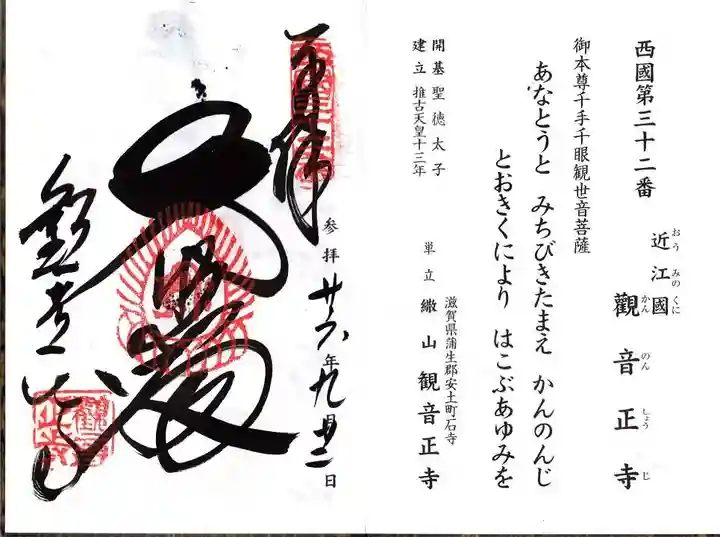 西國第三十二番
近江國
おうみのくに
觀音正寺
かんのんしょうじ
御本尊千手千眼観世音菩薩
あなとうと みちびきたまえ かんのんじ
とおきくにより はこぶあゆみを
開基聖徳太子
建立推古天皇十三年
滋賀県蒲生郡安土町石寺
単立 繖山 観音正寺
奉拝
参拝 廿六年九月廿二日
大悲殿
觀音正寺